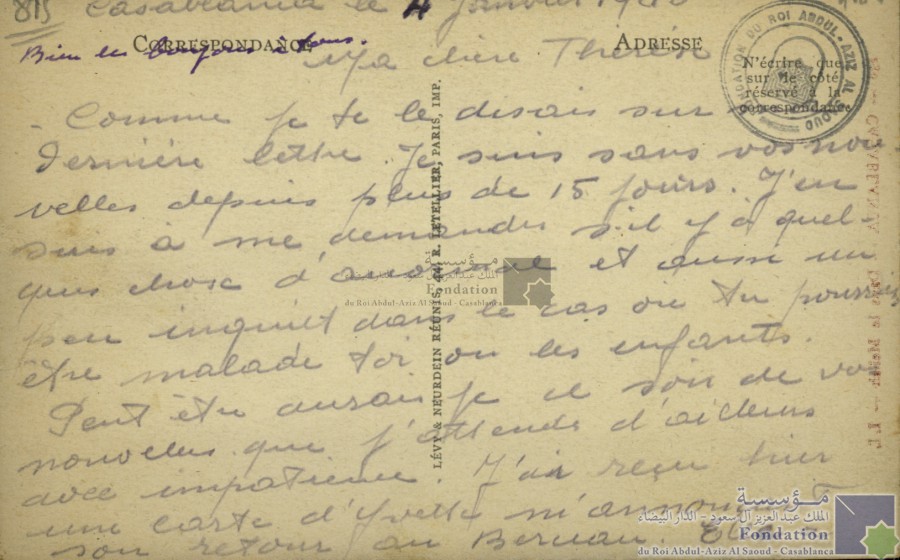 815
Casablanca le 4 Janvier
Bien les bonjours à tous.
CORRESPONDANCE
ADRESSE
Ma chère Thérèse
N'écrire que
sur le côté
réservé à la
correspondance
FONDATION DU ROI ABDUL-AZIZ AL SAOUD
- Comme je te le disais sur
dernière lettre. Je suis sans vos nou
velles depuis plus de 15 jours. J'en
suis à me demander s'il y à quel-
que chose d'anormal et aussi un
peu inquiet dans le cas où tu pourrais
être malade toi ou les enfants.
Peut être aurais je ce soir de vos
nouvelles que j'attends d'ailleurs
avec impatience. J'ai reçu hier
une carte d'Yvette m'annonçant
son retour au
LÉVY & NEURDEIN RÉUNIS, 44, R. LETELLIER, PARIS, IMP.
مؤسسة
الملك عبد العزيز آل سعود - الدار البيضاء
Fondation
du Roi Abdul-Aziz Al Saoud - Casablanca
مؤسسة
الملك عبد العزيز آل سعود - الدار البيضاء
Fondation
du Roi Abdul-Aziz Al Saoud - Casablanca